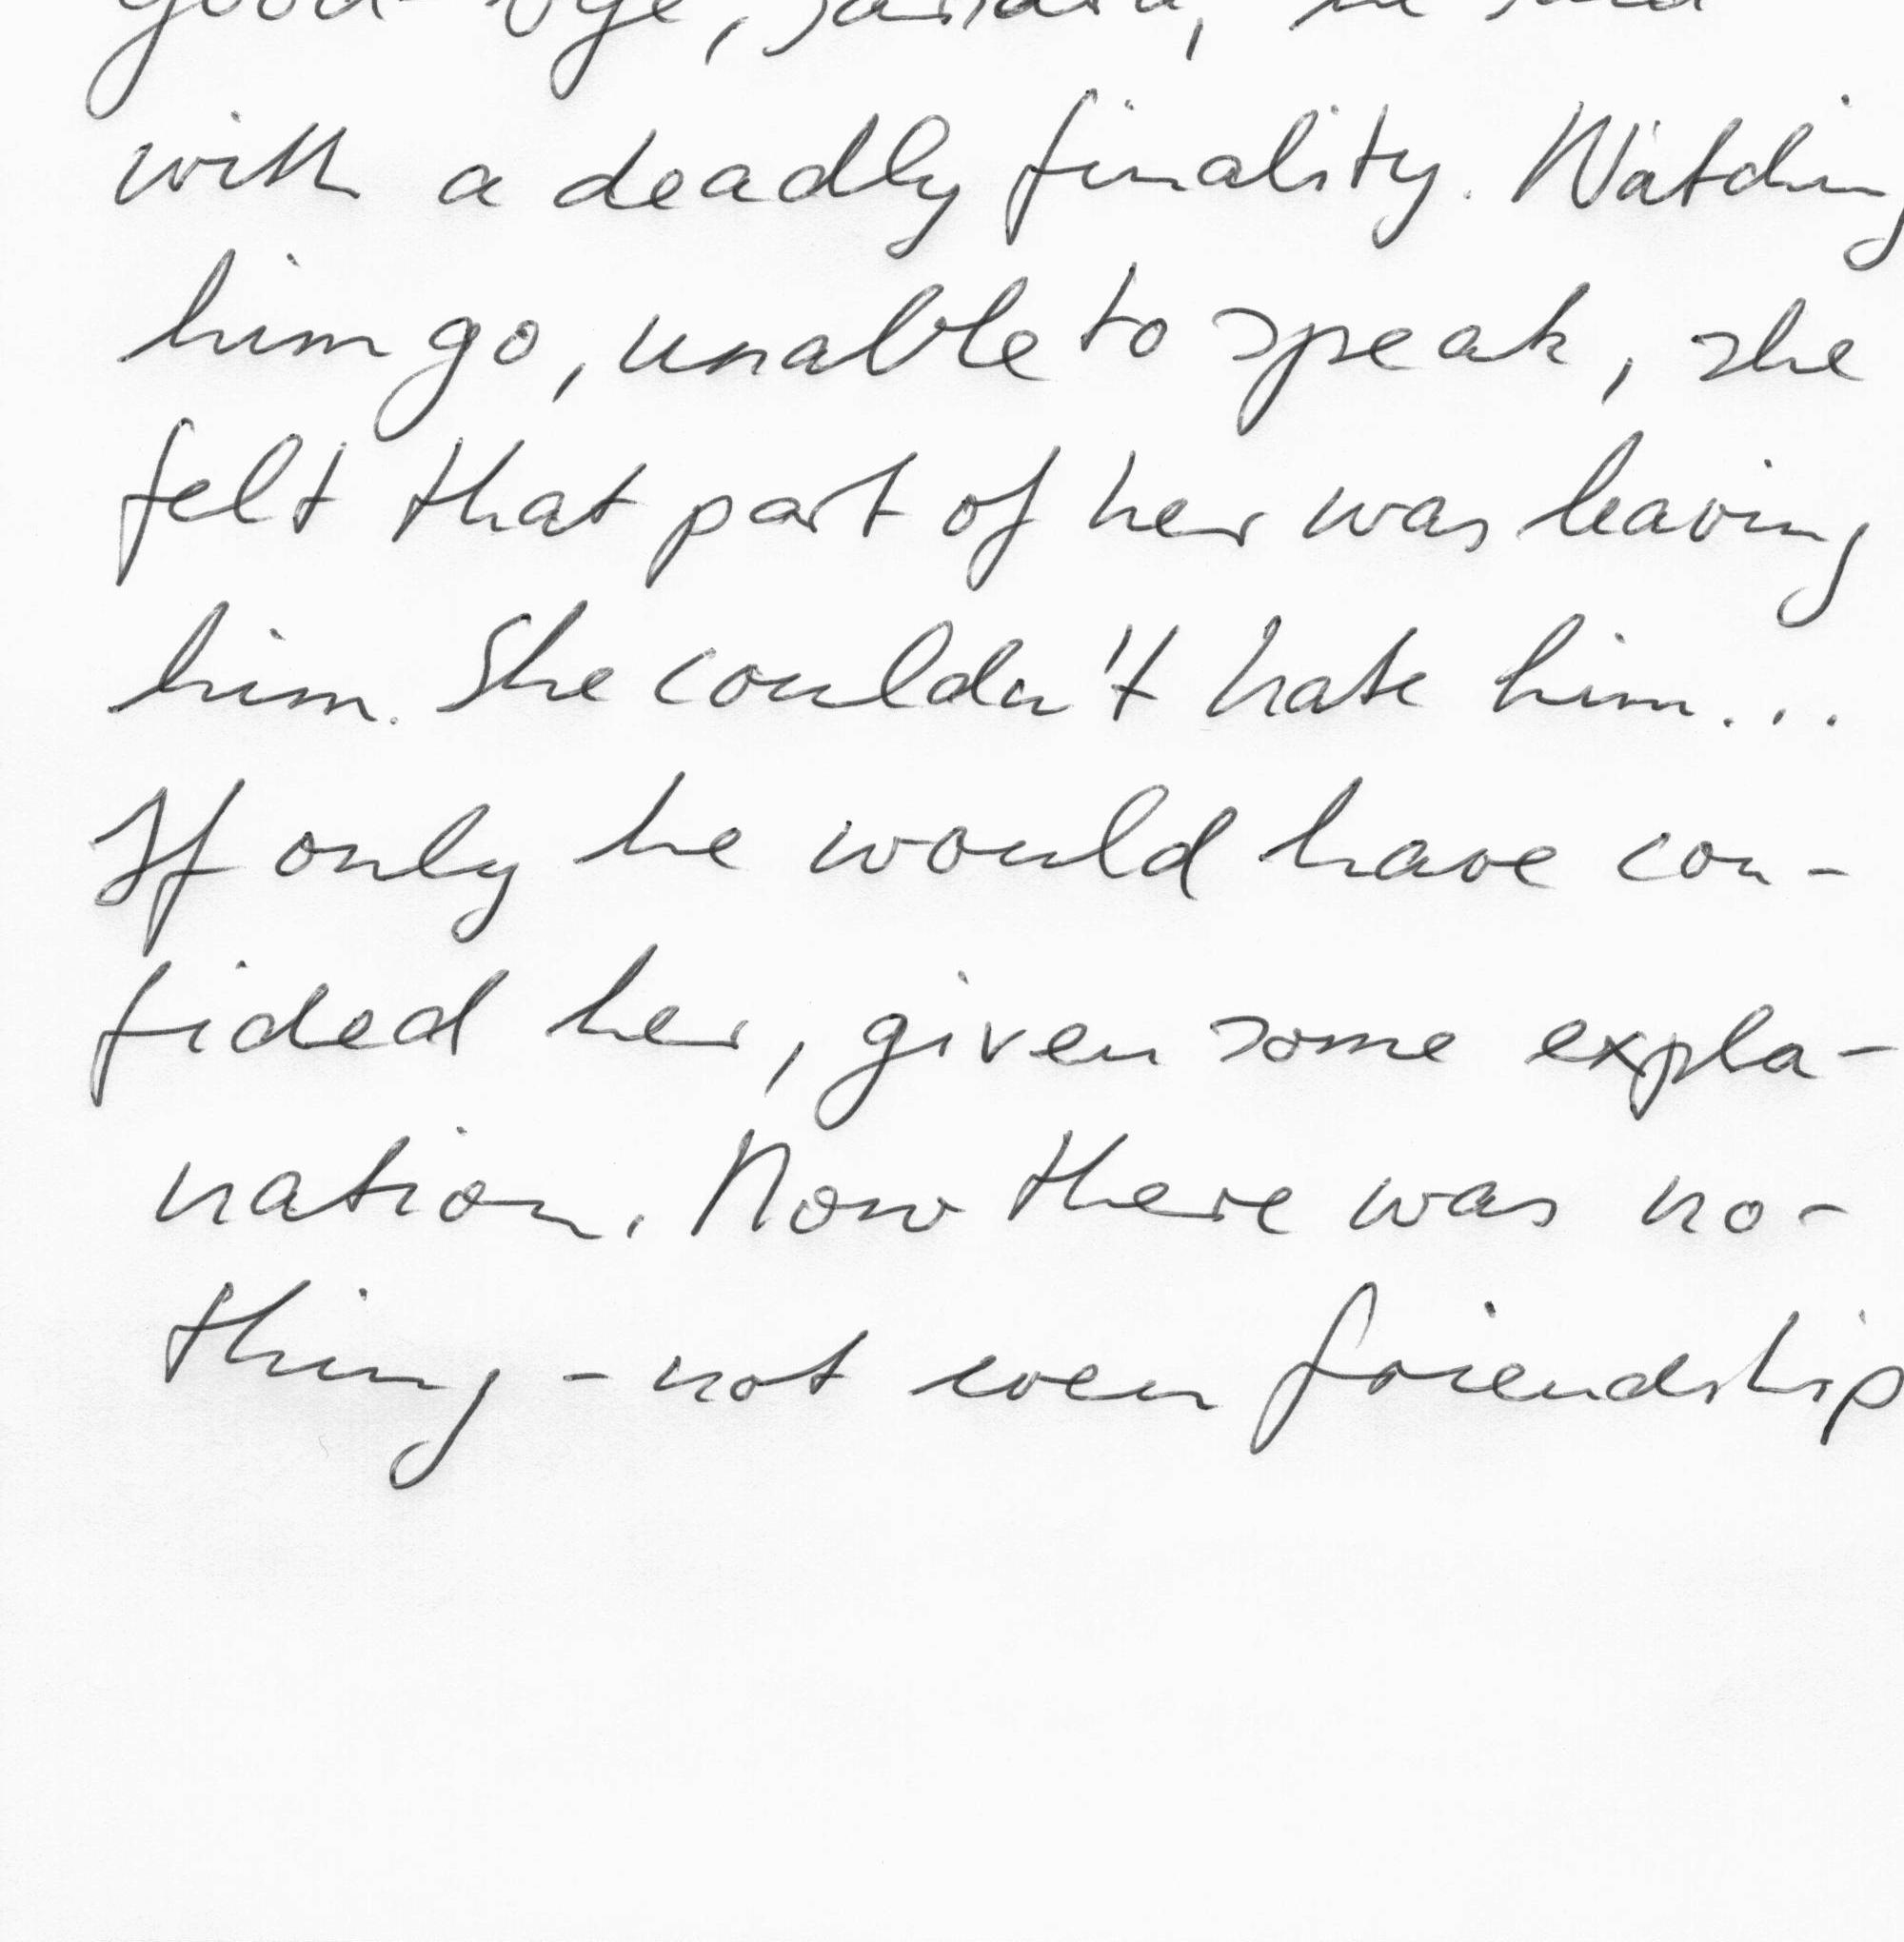 good-bye, Sandra, he said
with a deadly finality. Watching
him go, unable to speak, she
felt that part of her was leaving
him. She couldn't hate him...
If only he would have con-
fided her, given some expla-
nation. Now there was no-
thing - not even friendship